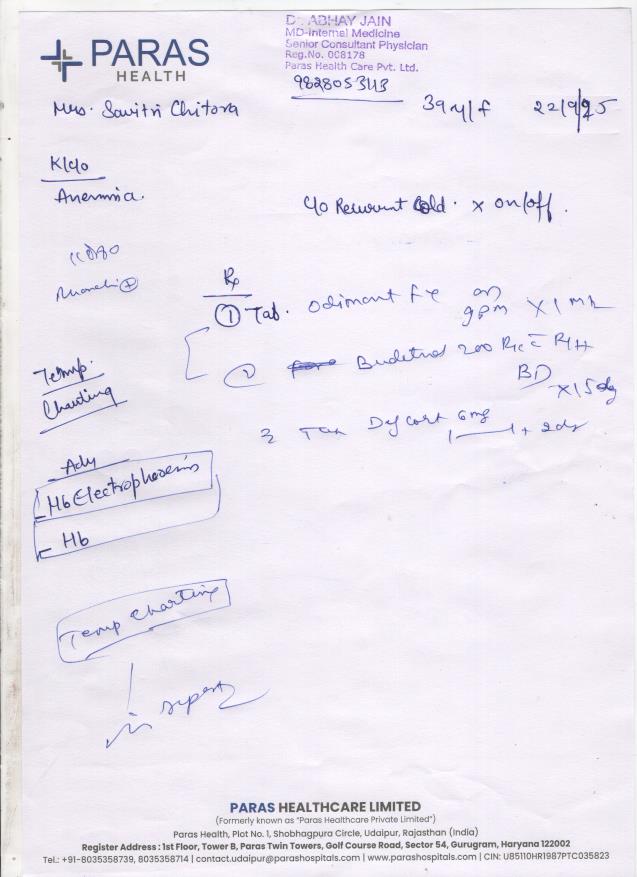 PARAS
HEALTH
Dr. ABHAY JAIN
MD-Internal Medicine
Senior Consultant Physician
Reg.No. 008178
Paras Health Care Pvt. Ltd.
9828053113
Mrs. Savitri Chitora
39y/f 22/9/25
K/c/o
Anemia.
c/o Recurrent Cold. x on/off.
Rx
① Tab. Odimont Fx
9pm x 1 mth
② Budetrol 200 R/c c R/H
BD
x 15 dy
3 Tab Defcort 6mg
Temp.
Charting
- Adv
- Hb Electrophoresis
- Hb
Temp Charting
PARAS HEALTHCARE LIMITED
(Formerly known as "Paras Healthcare Private Limited")
Paras Health, Plot No. 1, Shobhagpura Circle, Udaipur, Rajasthan (India)
Register Address : 1st Floor, Tower B, Paras Twin Towers, Golf Course Road, Sector 54, Gurugram, Haryana 122002
Tel.: +91-8035358739, 8035358714 | contact.udaipur@parashospitals.com | www.parashospitals.com | CIN: U85110HR1987PTC035823